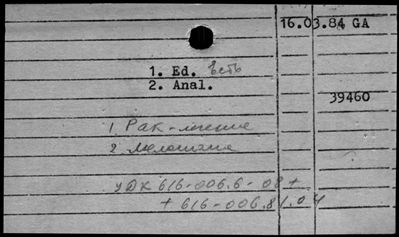 16.03.84 GA
1. Ed. Есть
2. Anal.
39460
1. Рак - лечение
2. Меланома
УДК 616-006.6-08 +
+ 616-006.81.04